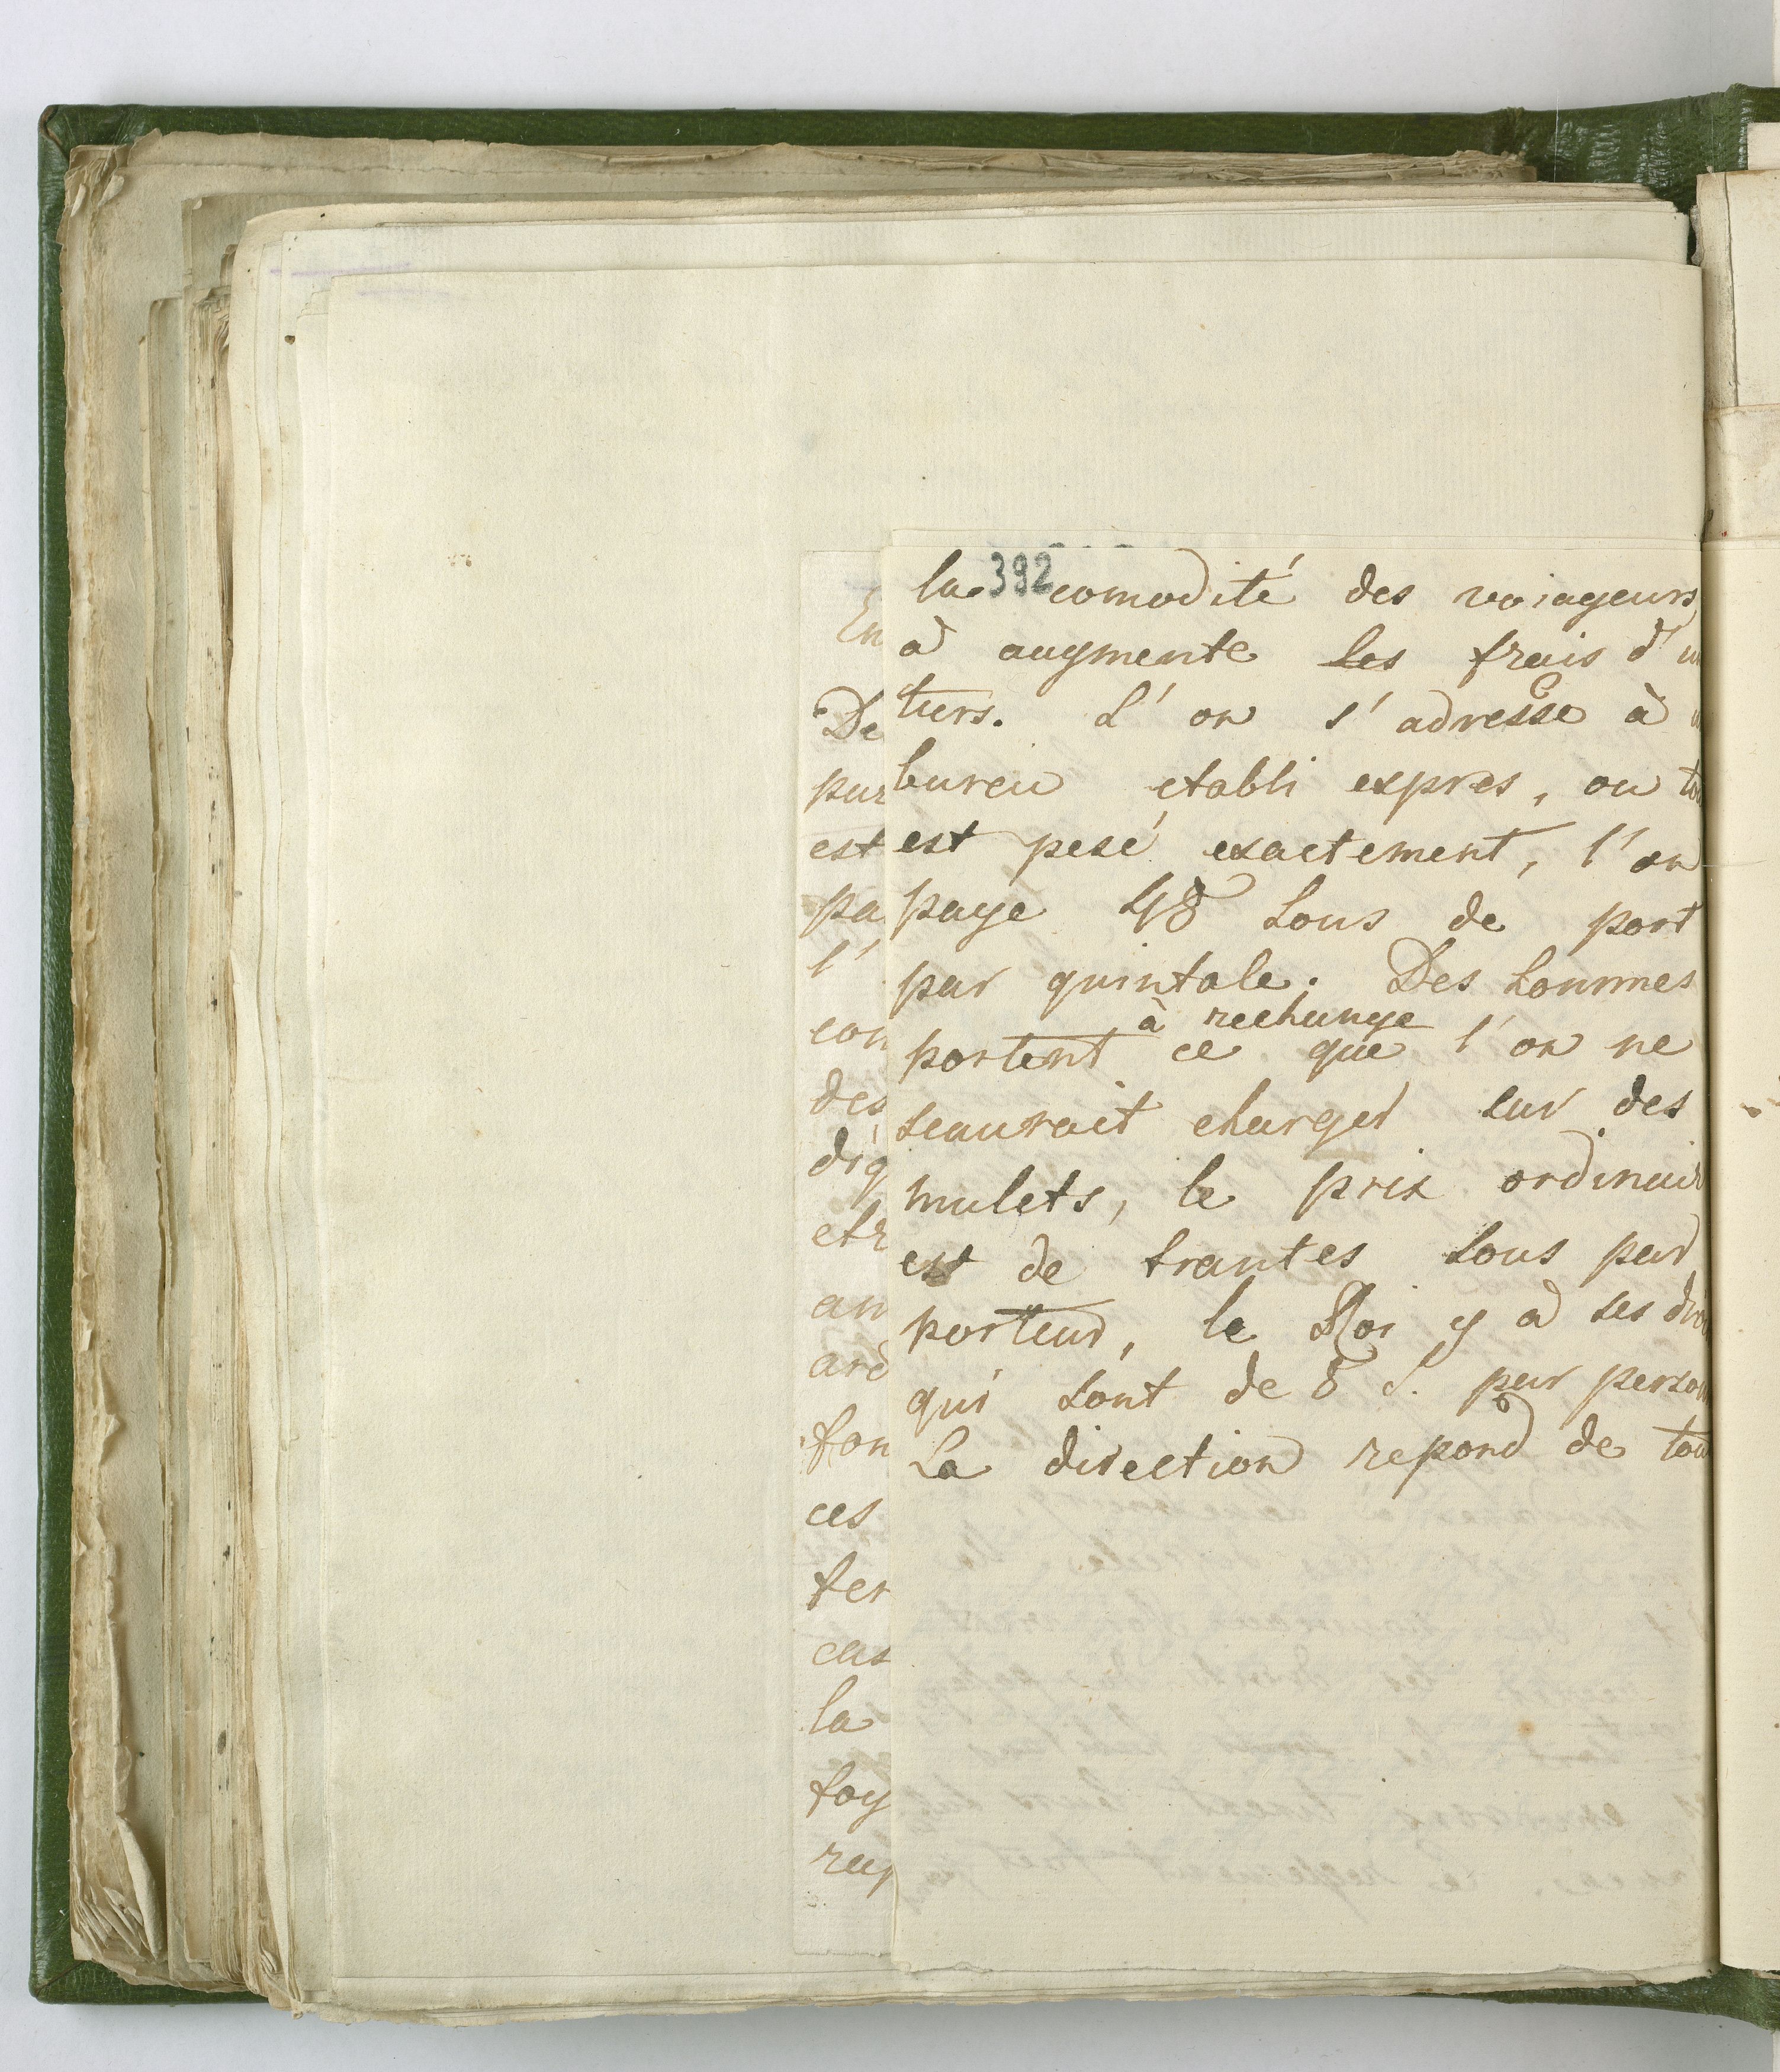 392
la comodité des voiageurs,
a augmente les frais d'un
tiers. L'on s'adresse à
bureu etabli expres, ou tou
est pesé exactement, l'on
paye 48 sous de port
par quintale. Des hommes
à rechange
portent ce que l'on ne
scaurait charger sur des
mulets, le prix ordinair
est de trantes sous par
porteur, le Roi y a ses dro
qui sont de 8 S. par person
La direction repond de tou
En
De
par
est
pa
l'
com
des
dig
etr
an
are
fon
ces
ter
cas
la
foy
rap